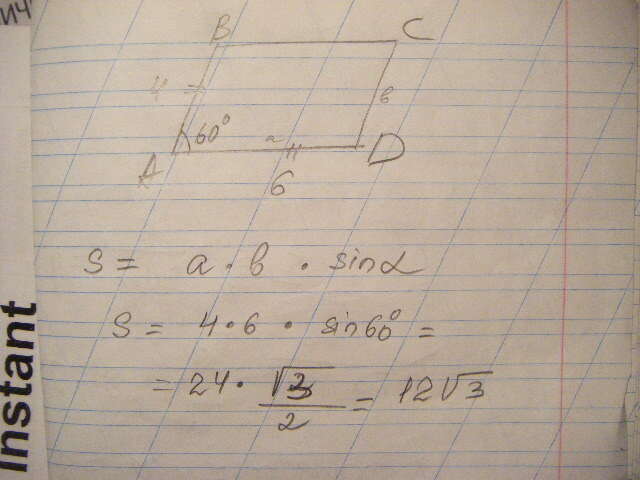 ич
B C
4 в
60°
a
A D
6
S = a · в · sinα
S = 4 · 6 · sin60° =
= 24 · √3/2 = 12√3
Instant